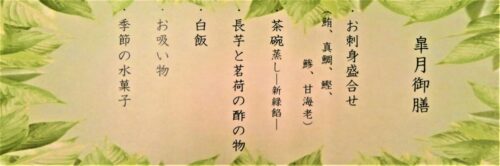 皐月御膳
・お刺身盛合せ
(鮪、真鯛、鰹、
鯵、甘海老)
・茶碗蒸し―新緑餡―
・長芋と茗荷の酢の物
・白飯
・お吸い物
・季節の水菓子